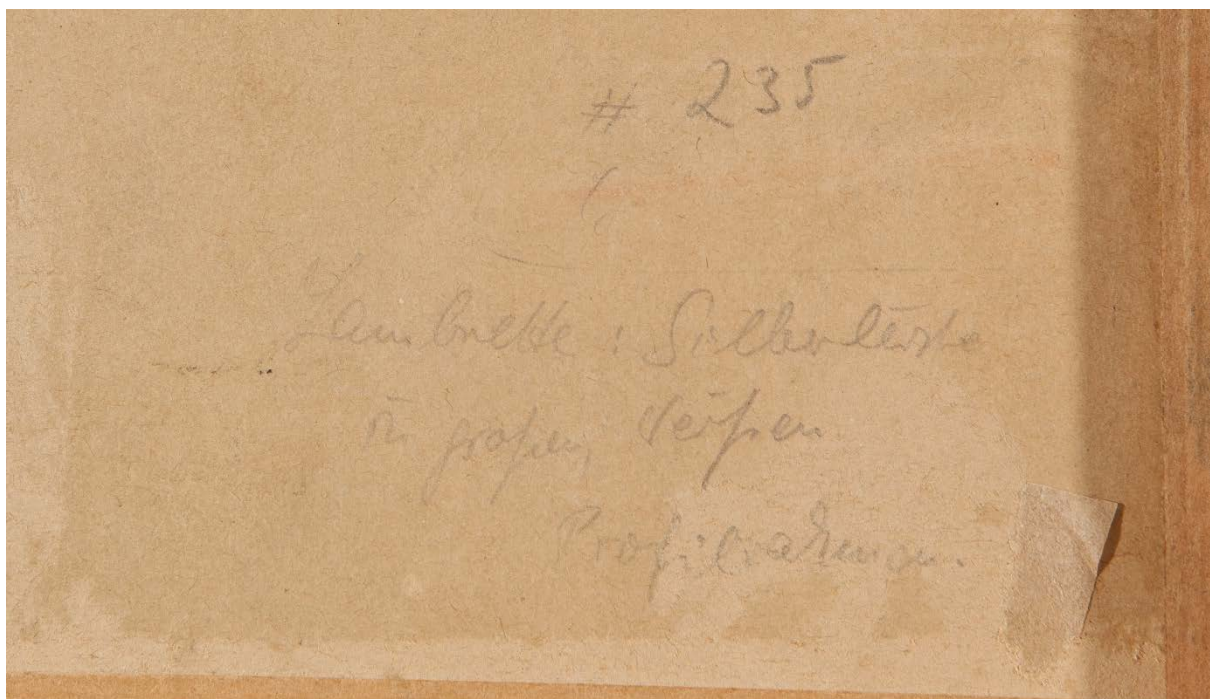 # 235
Lambrette: Silberleiste
in großen, weißen
Profilrahmen.